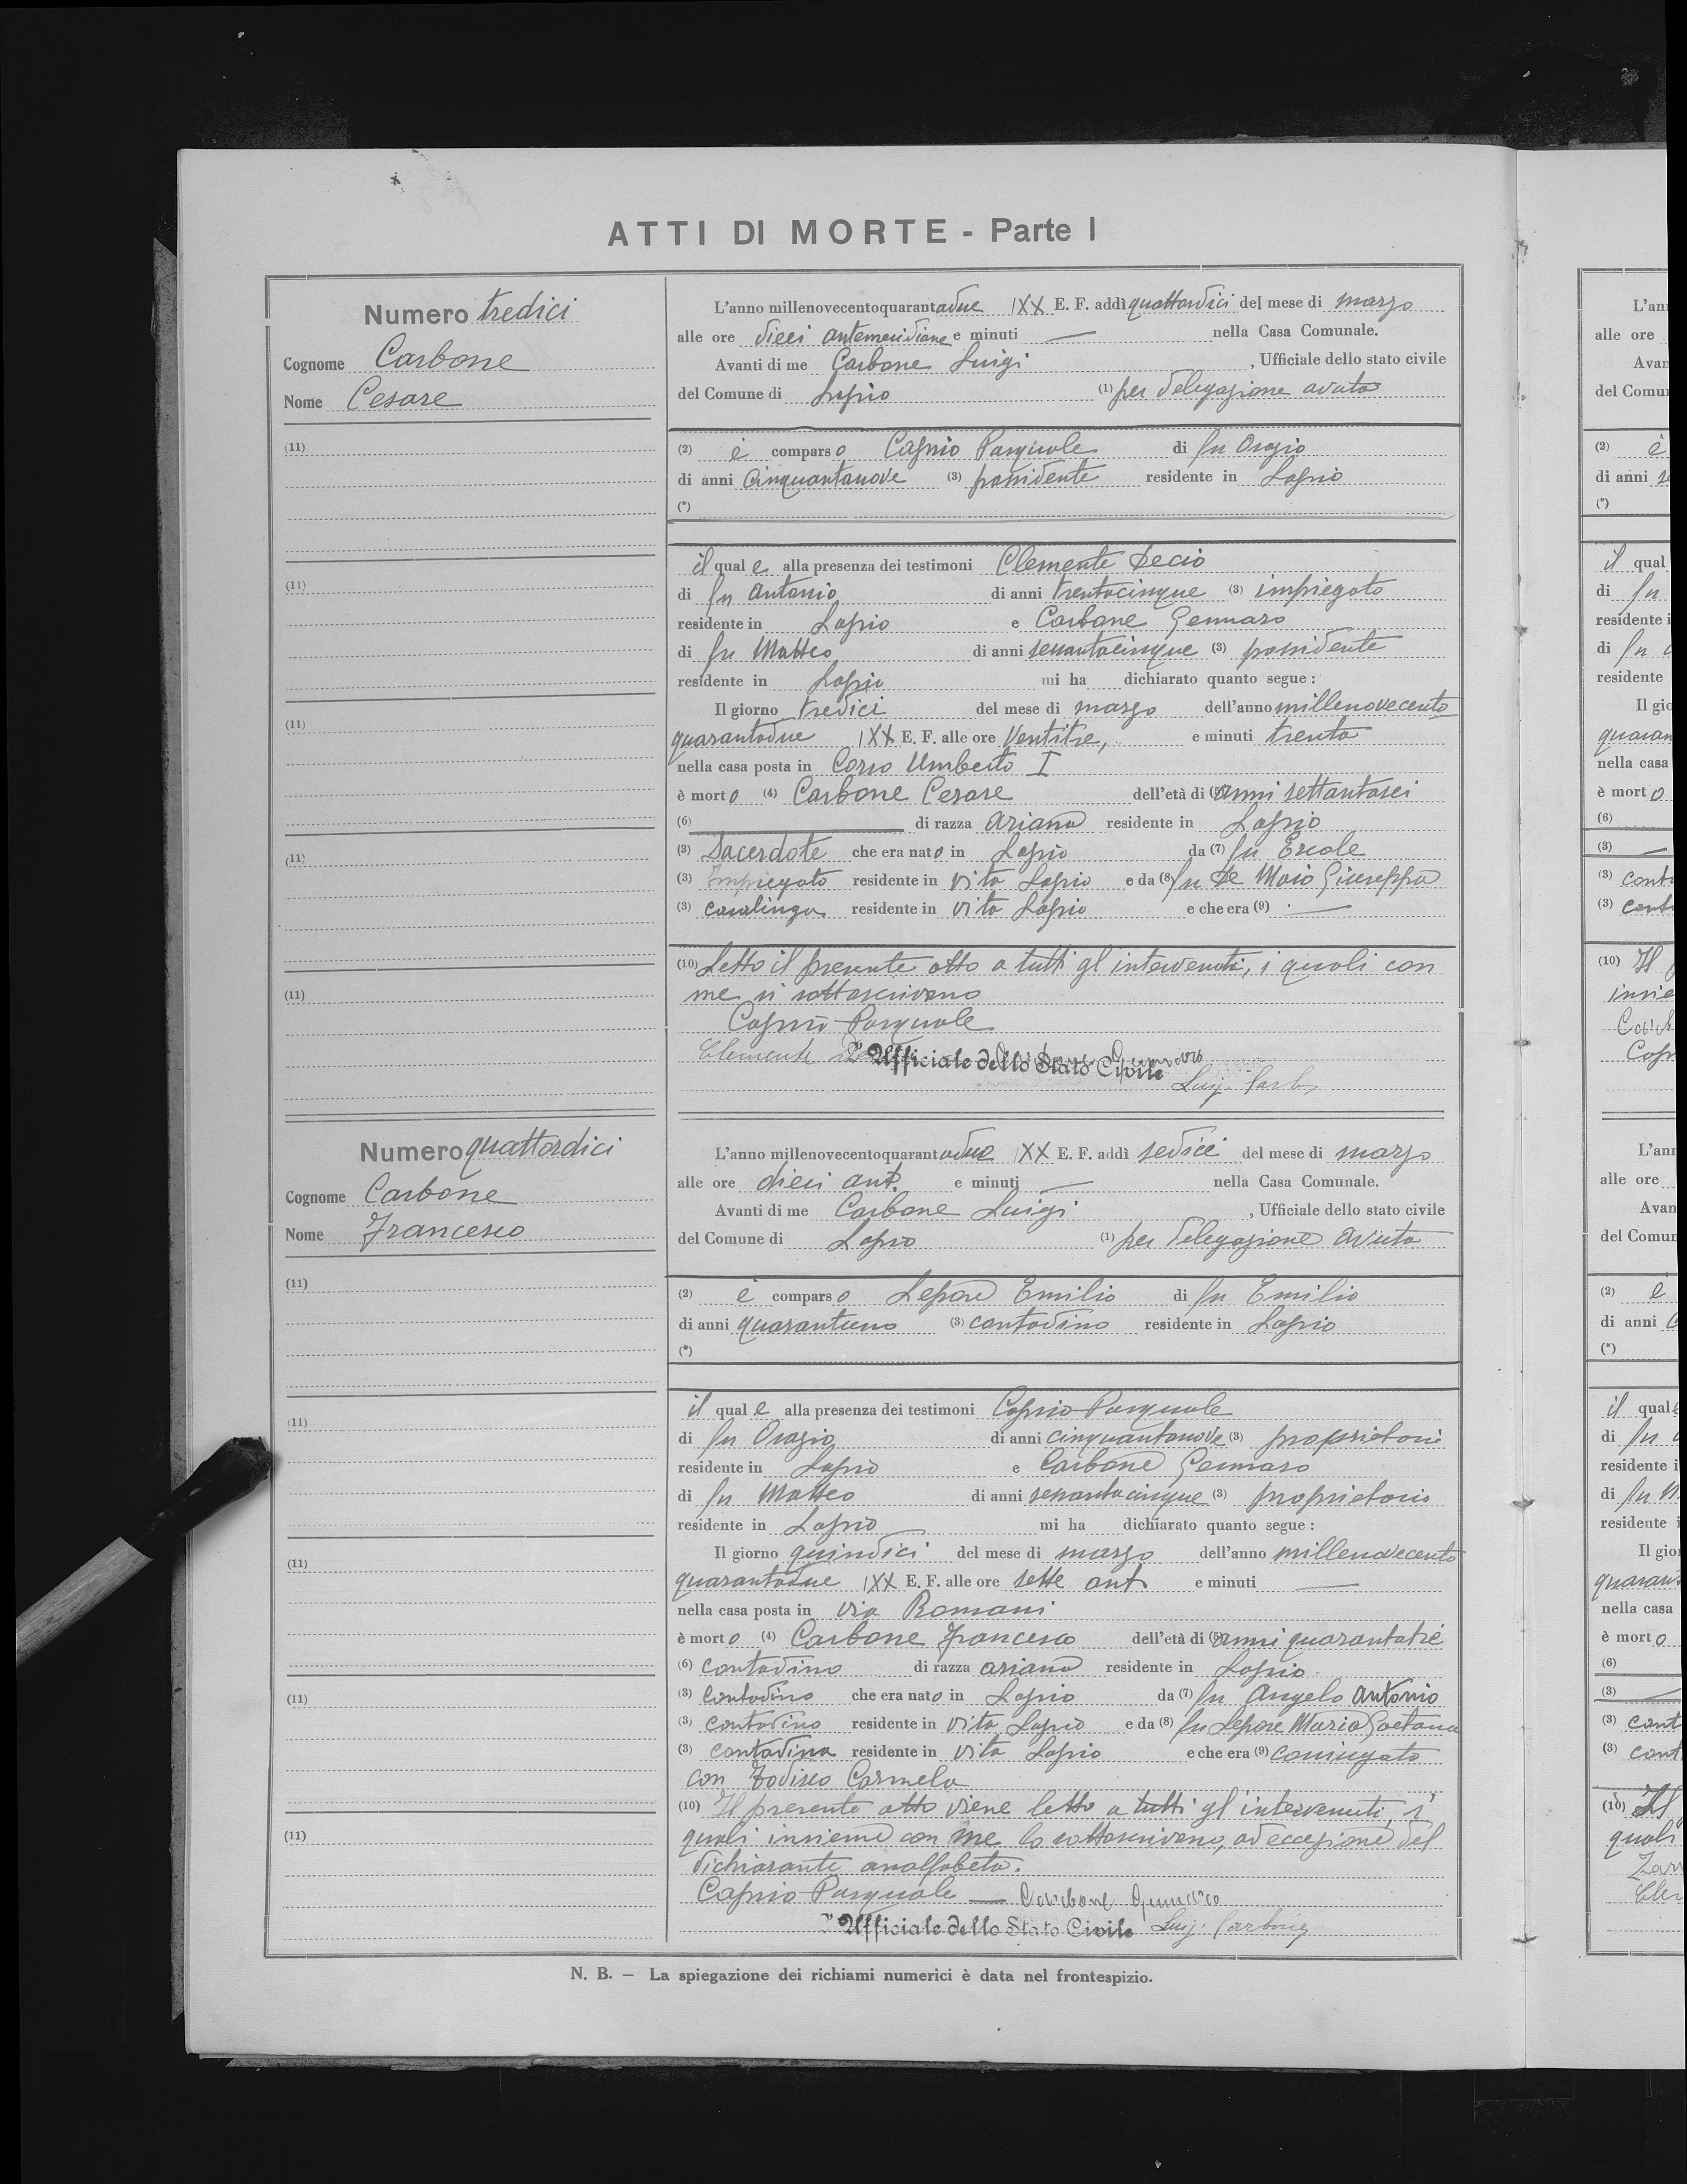 ATTI DI MORTE - Parte I
Numero tredici
Cognome Carbone
Nome Cesare
(11)
(11)
(11)
(11)
(11)
L'anno millenovecentoquarantadue XX E. F. addì quattordici del mese di marzo
alle ore dieci antemeridiane e minuti — nella Casa Comunale.
Avanti di me Carbone Luigi , Ufficiale dello stato civile
del Comune di Lapio (1) per delegazione avuta
(2) è comparso Caprio Pasquale di fu Orazio
di anni cinquantanove (3) possidente residente in Lapio
(*)
il quale alla presenza dei testimoni Clemente Decio
di fu Antonio di anni trentacinque (3) impiegato
residente in Lapio e Carbone Gennaro
di fu Matteo di anni sessantacinque (3) possidente
residente in Lapio mi ha dichiarato quanto segue :
Il giorno tredici del mese di marzo dell'anno millenovecento
quarantadue XX E. F. alle ore ventitre, e minuti trenta
nella casa posta in Corso Umberto I
è morto (4) Carbone Cesare dell'età di (5) anni settantasei
(6) — di razza ariana residente in Lapio
(3) Sacerdote che era nato in Lapio da (7) fu Ercole
(3) Impiegato residente in vita Lapio e da (8) fu De Maio Giuseppa
(3) casalinga residente in vita Lapio e che era (9) —
(10) Letto il presente atto a tutti gl'intervenuti, i quali con
me si sottoscrivono
Caprio Pasquale
Clemente Gennaro
L'Ufficiale dello Stato Civile Luigi Carbone
Numero quattordici
Cognome Carbone
Nome Francesco
(11)
(11)
(11)
(11)
(11)
L'anno millenovecentoquarantadue XX E. F. addì sedici del mese di marzo
alle ore dieci ant. e minuti — nella Casa Comunale.
Avanti di me Carbone Luigi , Ufficiale dello stato civile
del Comune di Lapio (1) per delegazione avuta
(2) è comparso Lepore Emilio di fu Emilio
di anni quarantuno (3) contadino residente in Lapio
(*)
il quale alla presenza dei testimoni Caprio Pasquale
di fu Orazio di anni cinquantanove (3) proprietario
residente in Lapio e Carbone Gennaro
di fu Matteo di anni sessantacinque (3) proprietario
residente in Lapio mi ha dichiarato quanto segue :
Il giorno quindici del mese di marzo dell'anno millenovecento
quarantadue XX E. F. alle ore sette ant. e minuti —
nella casa posta in via Romani
è morto (4) Carbone Francesco dell'età di (5) anni quarantatré
(6) contadino di razza ariana residente in Lapio
(3) Contadino che era nato in Lapio da (7) fu Angelo Antonio
(3) contadino residente in vita Lapio e da (8) fu Lepore Maria Gaetana
(3) contadina residente in vita Lapio e che era (9) coniugato
con Todisco Carmela
(10) Il presente atto viene letto a tutti gl'intervenuti, i
quali insieme con me lo sottoscrivono, ad eccezione del
dichiarante analfabeta.
Caprio Pasquale — Carbone Gennaro
L'Ufficiale dello Stato Civile Luigi Carbone
N. B. — La spiegazione dei richiami numerici è data nel frontespizio.